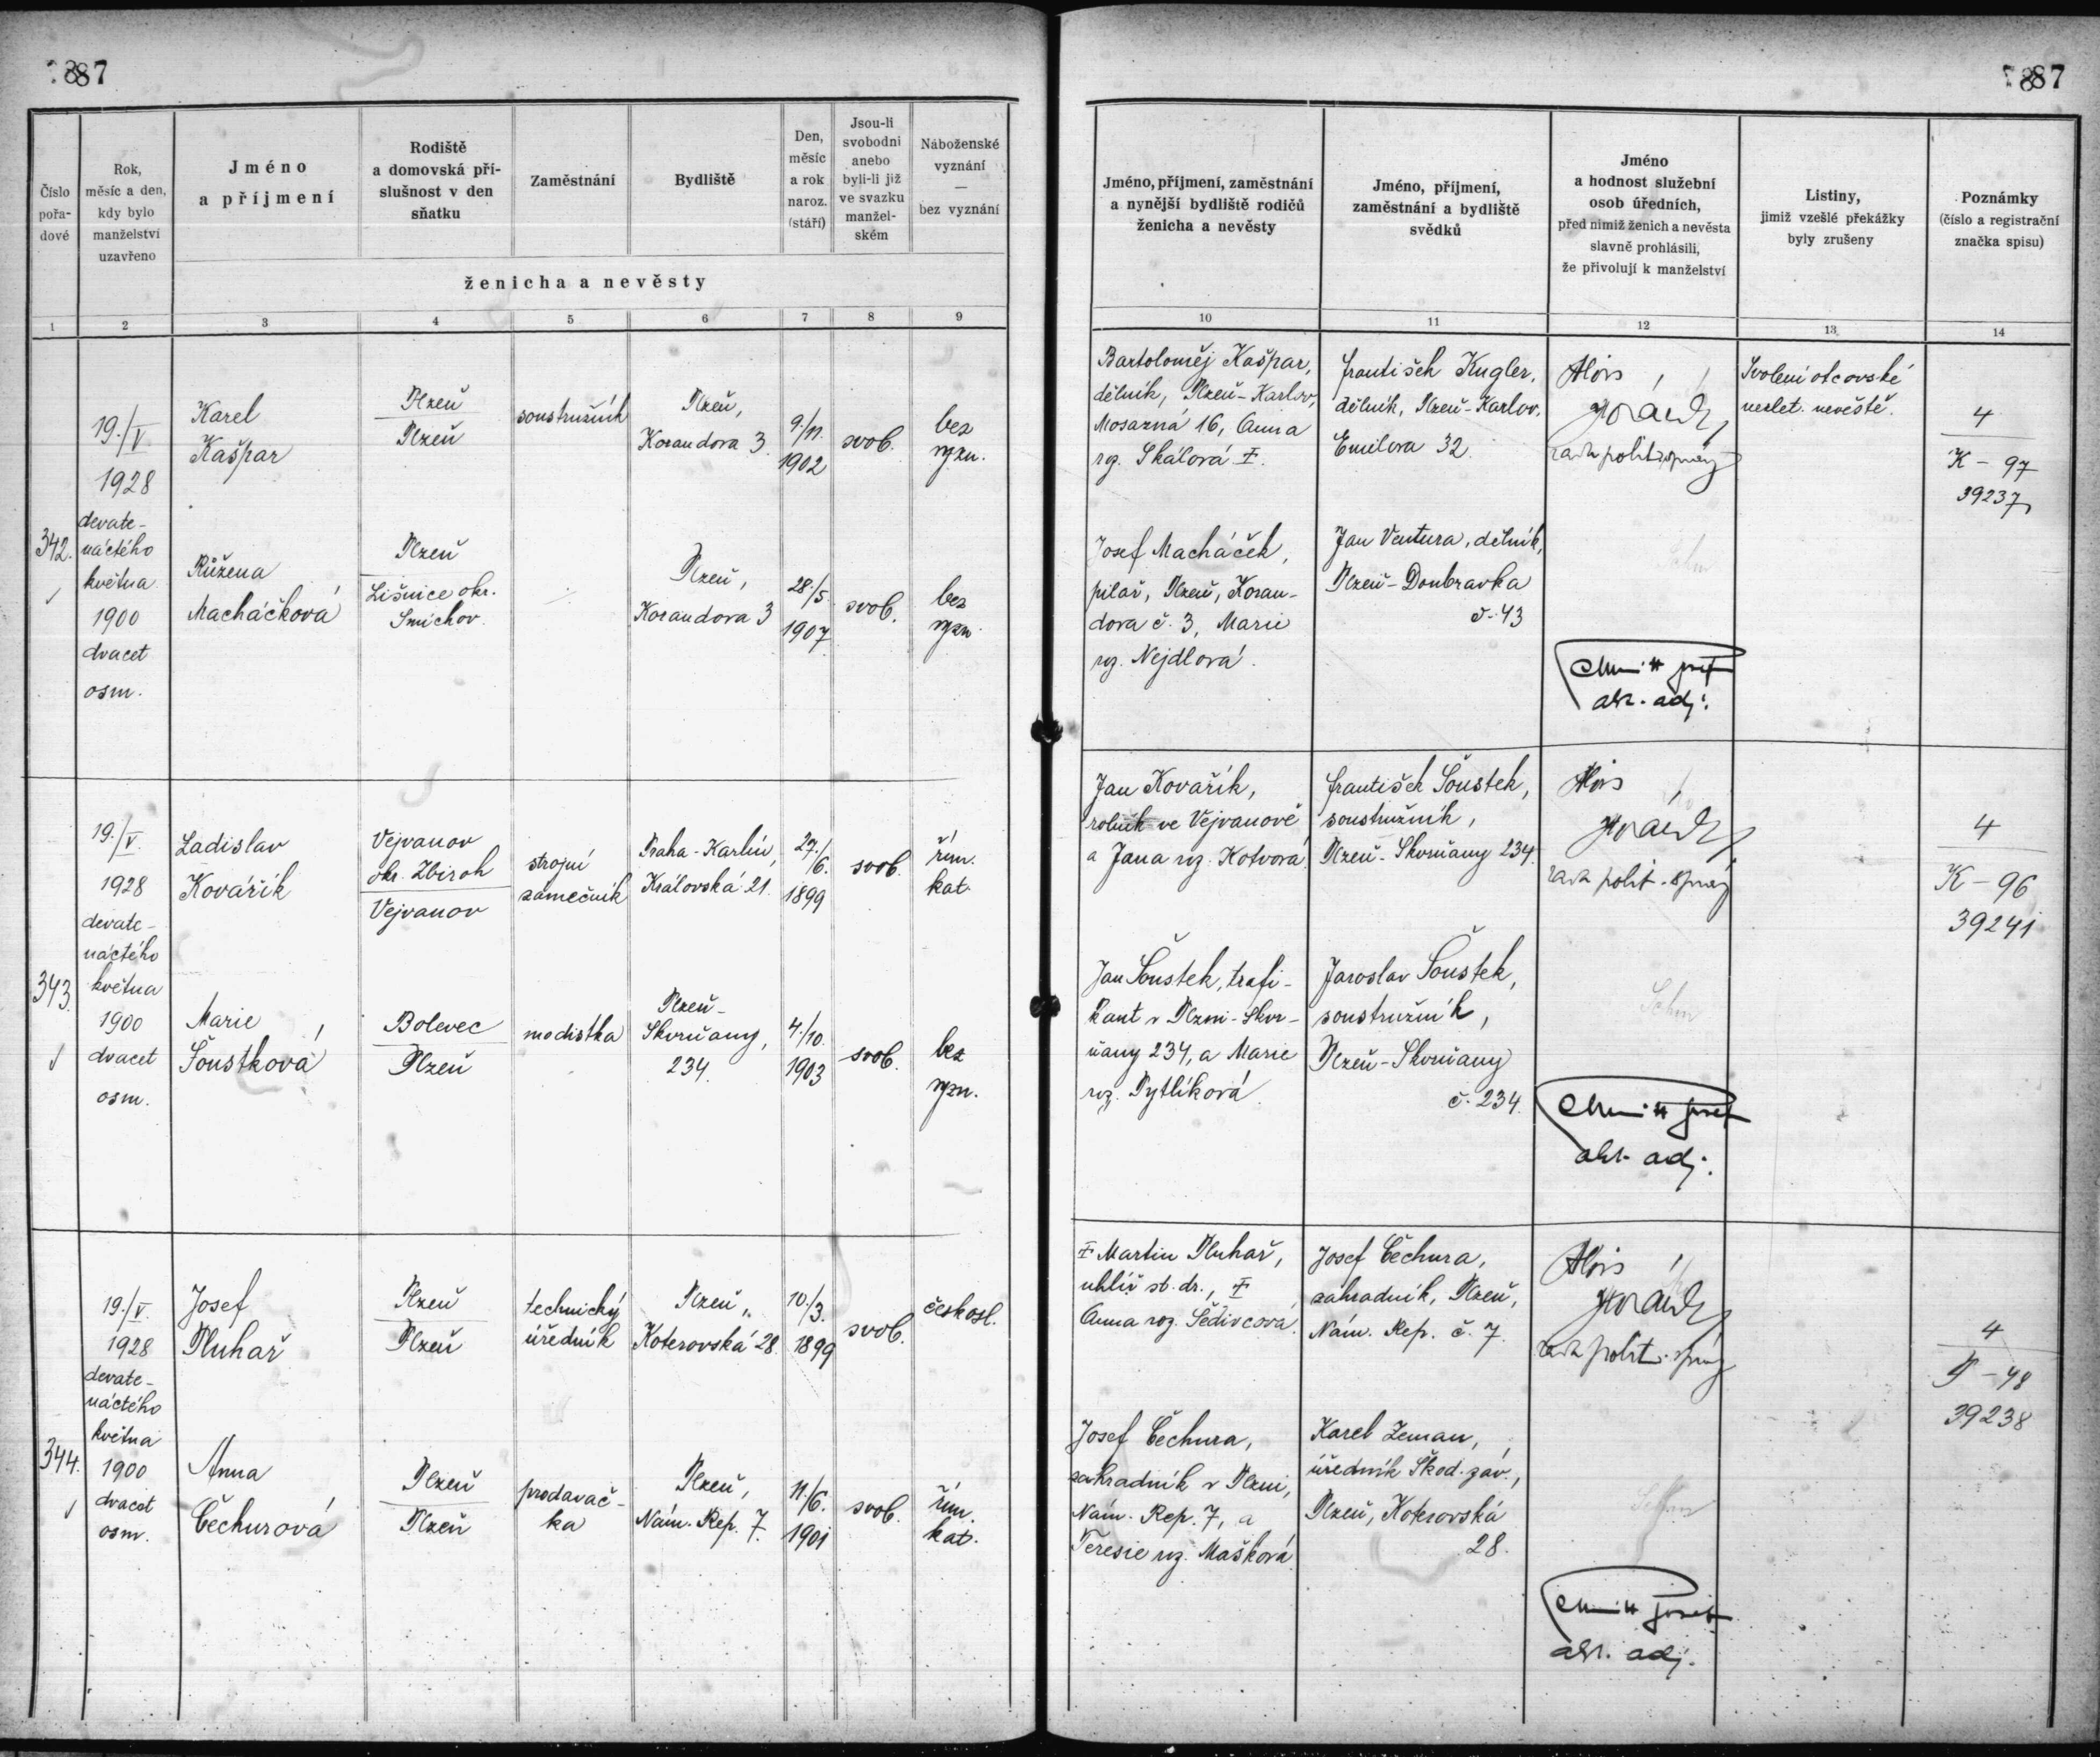 87
87
Číslo
pořa-
dové
Rok,
měsíc a den,
kdy bylo
manželství
uzavřeno
Jméno
a příjmení
Rodiště
a domovská pří-
slušnost v den
sňatku
Zaměstnání
Bydliště
Den,
měsíc
a rok
naroz.
(stáří)
Jsou-li
svobodni
anebo
byli-li již
ve svazku
manžel-
ském
Náboženské
vyznání
—
bez vyznání
ženicha a nevěsty
Jméno, příjmení, zaměstnání
a nynější bydliště rodičů
ženicha a nevěsty
Jméno, příjmení,
zaměstnání a bydliště
svědků
Jméno
a hodnost služební
osob úředních,
před nimiž ženich a nevěsta
slavně prohlásili,
že přivolují k manželství
Listiny,
jimiž vzešlé překážky
byly zrušeny
Poznámky
(číslo a registrační
značka spisu)
1 2 3 4 5 6 7 8 9
10 11 12 13 14
342.
19./V
1928
devate-
náctého
května
1900
dvacet
osm.
Karel
Kašpar
Plzeň
Plzeň
soustružník
Plzeň,
Korandova 3
9./11.
1902
svob.
bez
vyzn.
Růžena
Macháčková
Plzeň
Lišnice okr.
Smíchov.
Plzeň,
Korandova 3
28./5.
1907
svob.
bez
vyzn.
Bartoloměj Kašpar,
dělník, Plzeň-Karlov,
Mosazná 16, Anna
roz. Skálová
Josef Macháček,
pilař, Plzeň, Koran-
dova č. 3, Marie
roz. Nejdlová.
František Kugler,
dělník, Plzeň-Karlov,
Emilova 32.
Jan Ventura, dělník,
Plzeň-Doubravka
č. 43
Alois
rada polit. správy
Schm
akc. adj.
Svolení otcovské
nezlet. nevěstě.
4
K - 97
39237
343
19./V.
1928
devate-
náctého
května
1900
dvacet
osm.
Ladislav
Kovářík
Vejvanov
okr. Zbiroh
Vejvanov
strojní
zámečník
Praha-Karlín,
Královská 21.
27./
6.
1899
svob.
řím.
kat.
Marie
Šoustková
Bolevec
Plzeň
modistka
Plzeň-
Skvrňany,
234.
4./10.
1903
svob.
bez
vyzn.
Jan Kovařík,
rolník ve Vejvanově
a Jana roz. Kotvorá
Jan Šoustek, trafi-
kant v Plzni-Skvr-
ňany 234, a Marie
roz. Pytlíková.
František Šoustek,
soustružník,
Plzeň-Skvrňany 234.
Jaroslav Šoustek,
soustružník,
Plzeň-Skvrňany
č. 234.
Alois
rada polit. správy
Schm
akc. adj.
4
K - 96
39241
344.
19./V.
1928
devate-
náctého
května
1900
dvacet
osm.
Josef
Pluhař
Plzeň
Plzeň
technický
úředník
Plzeň,
Koterovská 28.
10./3.
1899
svob.
českosl.
Anna
Čechurová
Plzeň
Plzeň
prodavač-
ka
Plzeň,
Nám. Rep. 7.
11./6.
1901
svob.
řím.
kat.
Martin Pluhař,
uhlíř st. dr.,
Anna roz. Šedivcová.
Josef Čechura,
zahradník v Plzni,
Nám. Rep. 7, a
Teresie roz. Mašková
Josef Čechura,
zahradník, Plzeň,
Nám. Rep. č. 7.
Karel Zeman,
úředník Škod. záv.,
Plzeň, Koterovská
28.
Alois
rada polit. správy
Schm
akc. adj.
4
P - 48
39238